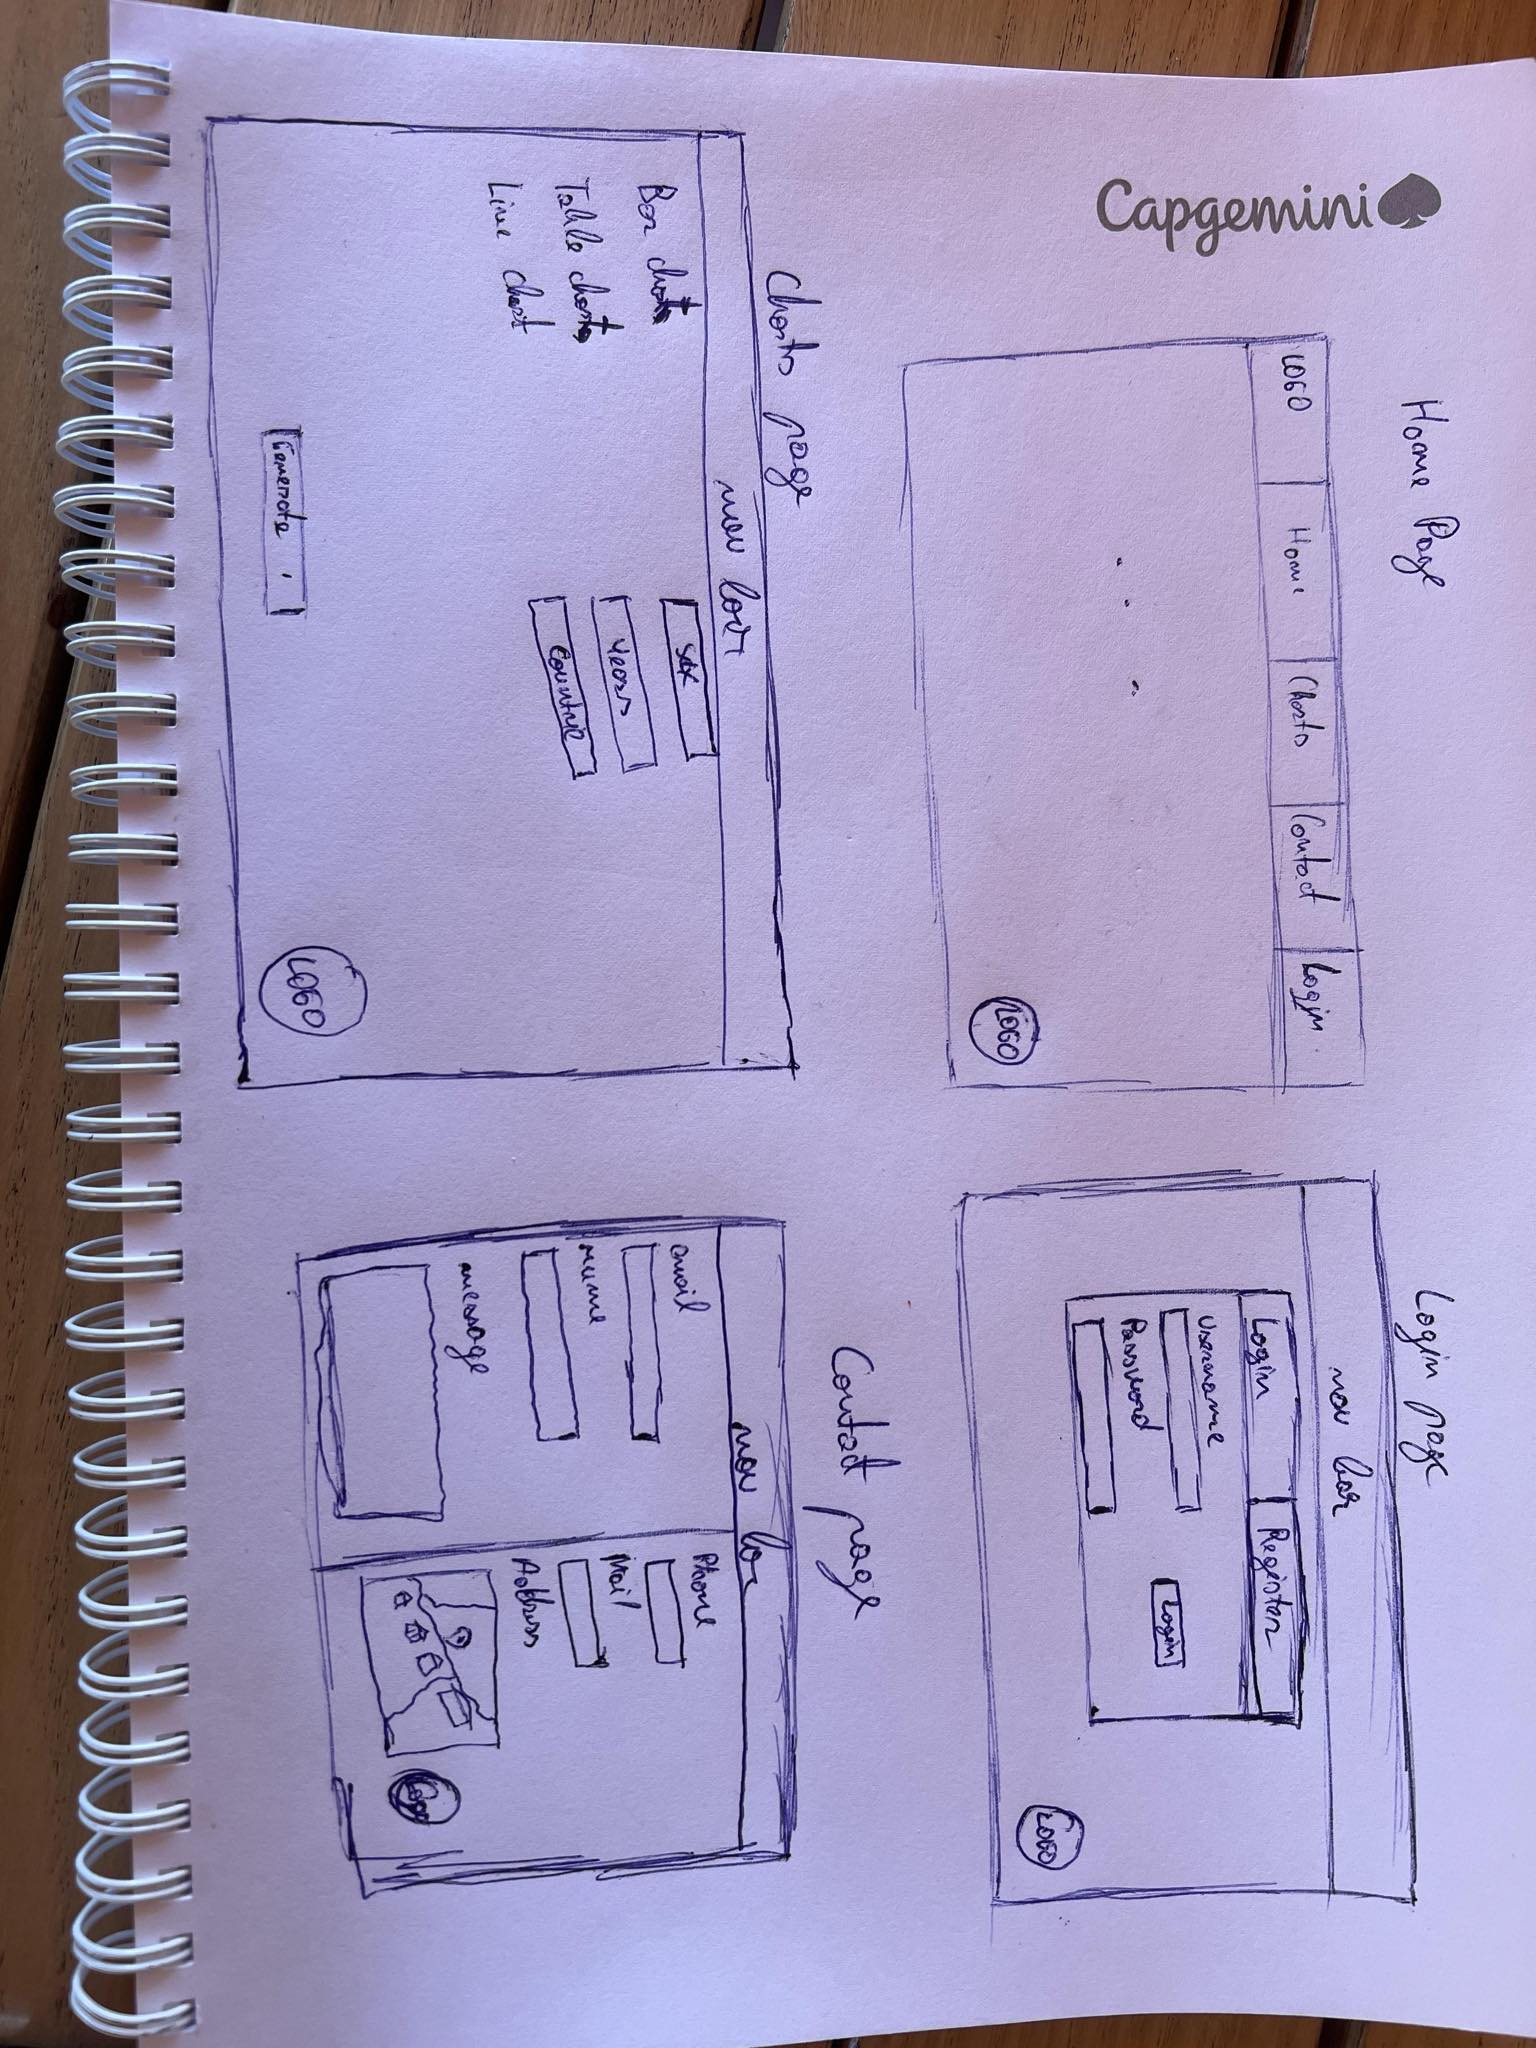 Capgemini
Home Page
LOGO Home Charts Contact Login
LOGO
Login page
nav bar
Login Register
Username
Login
Password
LOGO
Charts page
nav bar
Bar chart
Sex
Years
Table chart
Countrie
Line chart
Generate
LOGO
Contact page
nav bar
email
name
message
Phone
Mail
Address
Logo